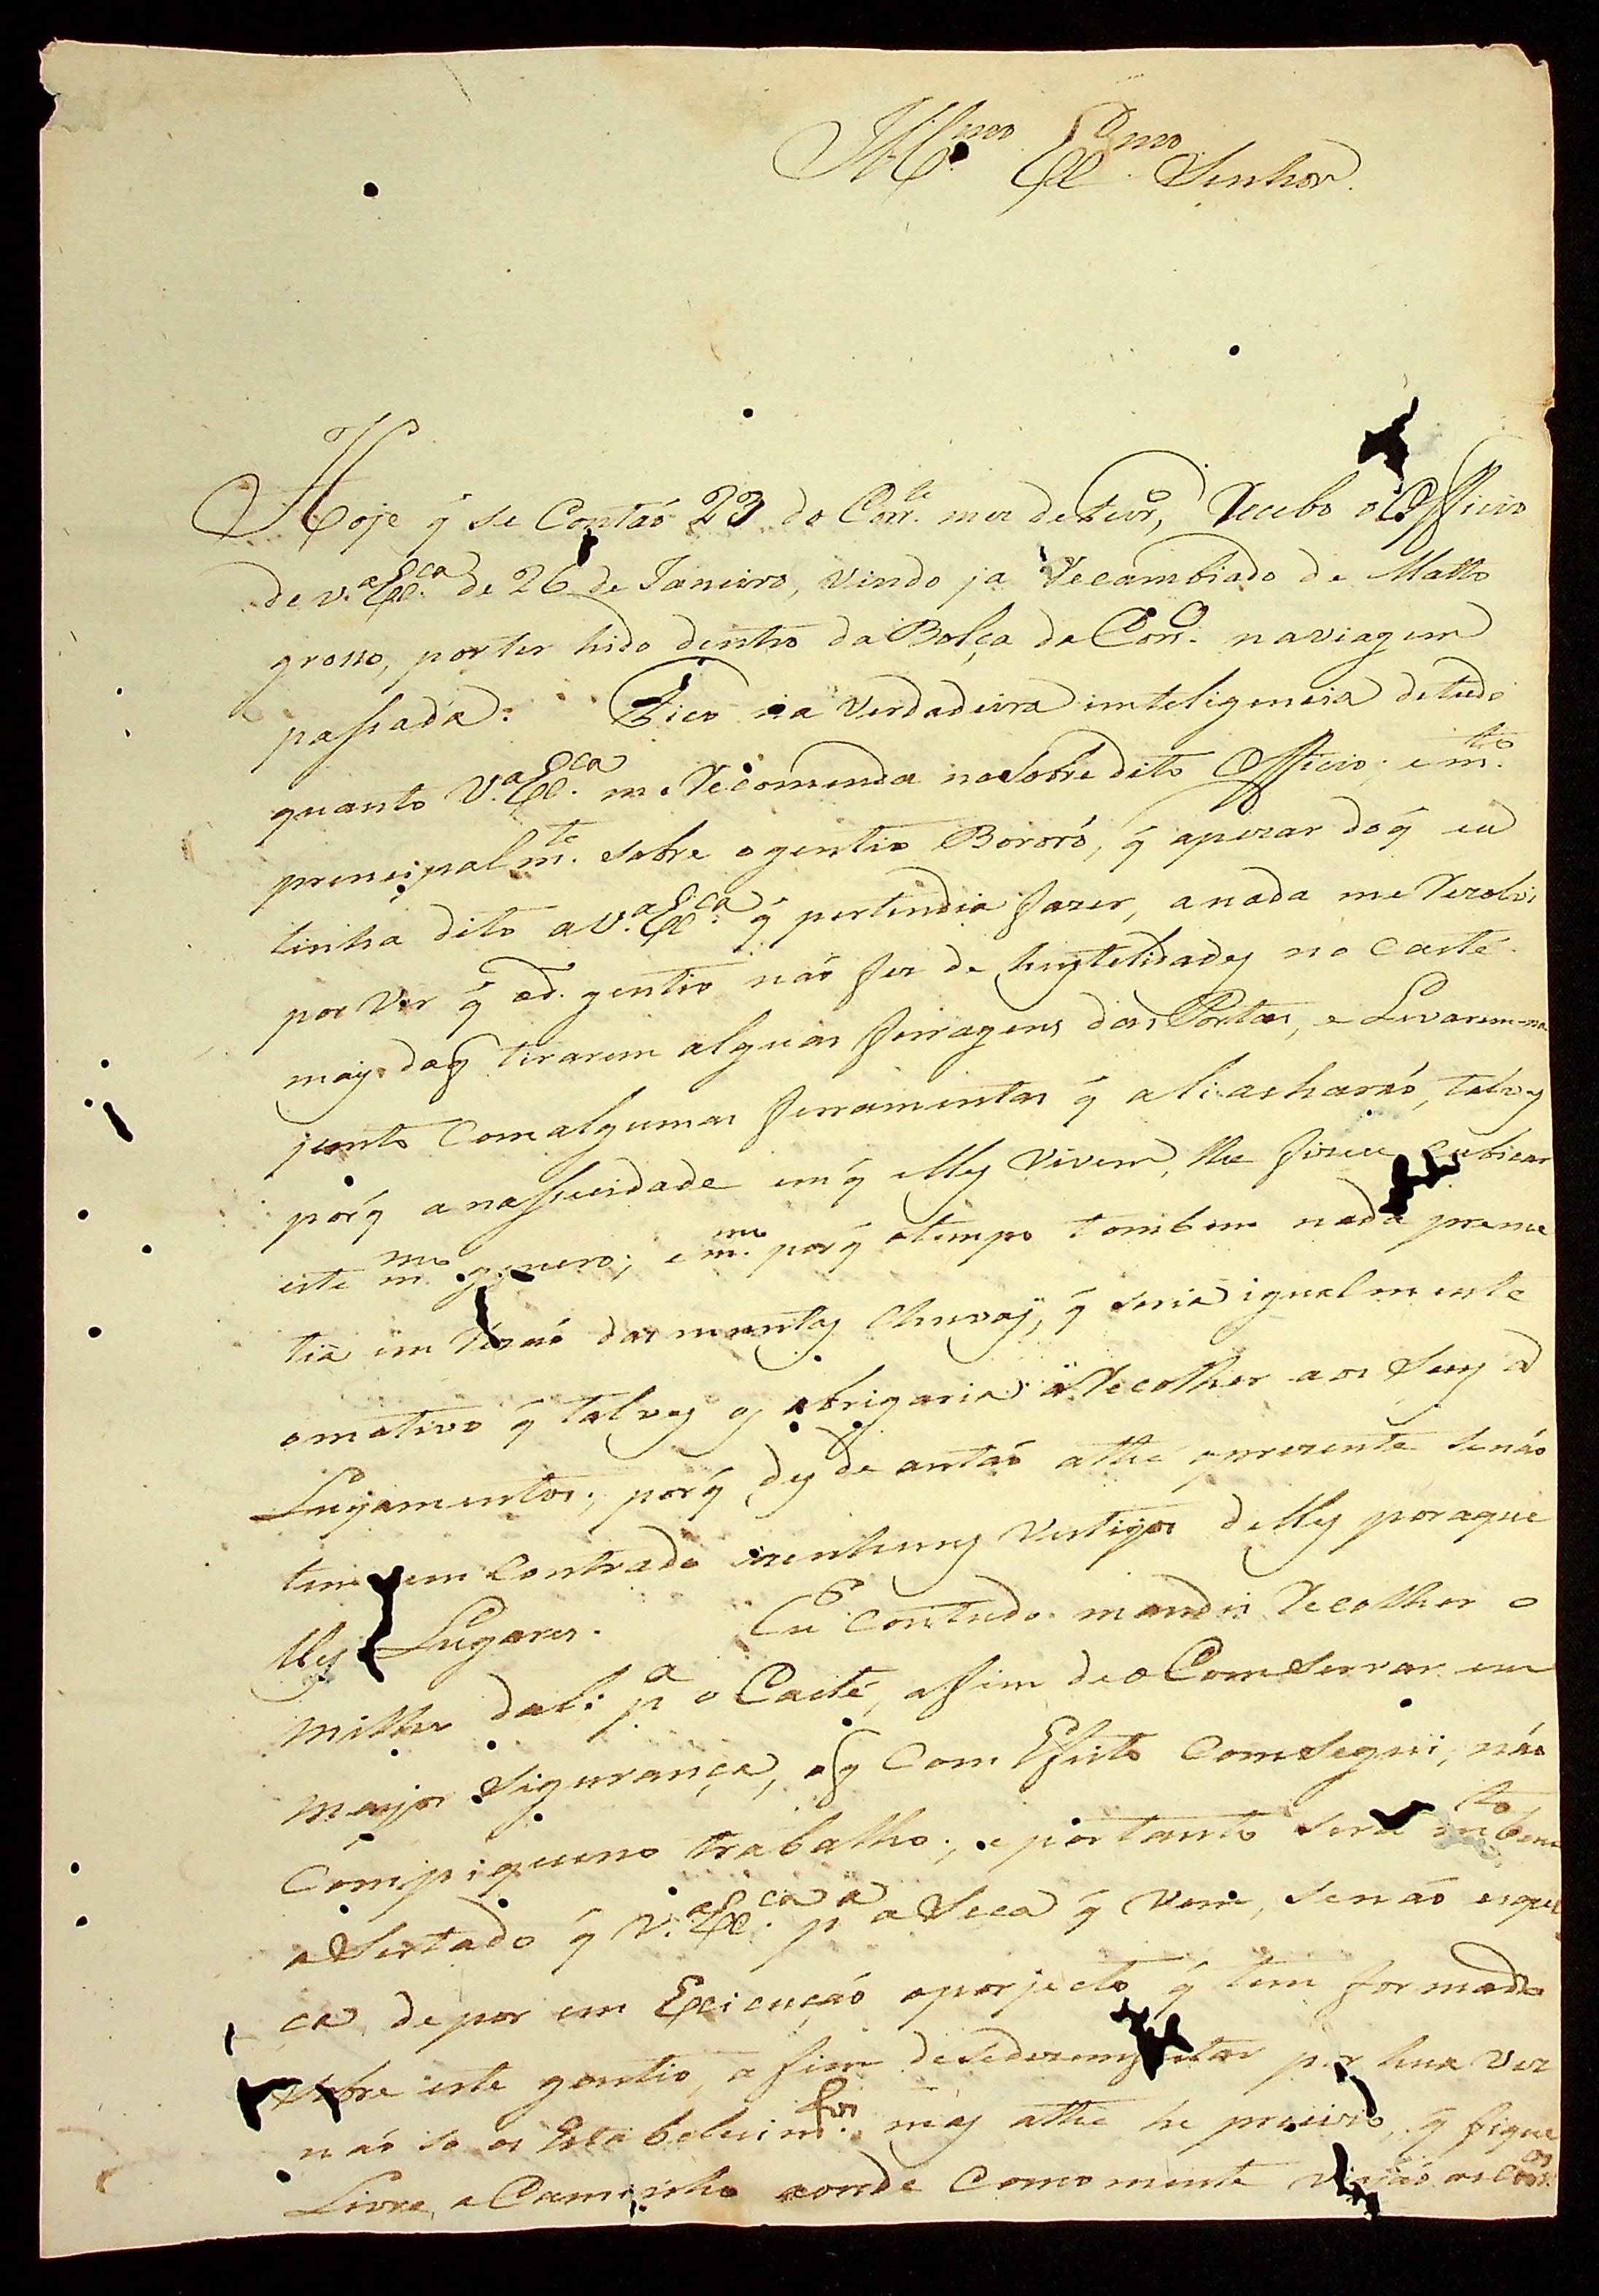 Ill.mo Ex.mo Senhor.
Hoje q̃ se Contaõ 23 do Corr.te mez de Fevr.o, Recebo o Officio
de V.a Ex.ca de 26 de Janeiro, vindo ja Recambiado de Matto
grosso, por ter hido dentro da Bolça do Corr.o na viagem
passada: Fico na Verdadeira inteligencia de tudo
quanto V.a Ex.ca me Recomenda no sobre dito Officio; e m.to
principalm.te sobre o gentio Bororó, q̃ apezar do q̃ eu
tinha dito a V.a Ex.ca q̃ pertendia fazer, a nada me Rezolvi
por ver q̃ o d.o gentio naõ fez de hustelidades no Caeté
mais do q̃ tirarem alguas ferragens das Portas, e Levarem-na
junto Com algumas ferramentas q̃ ali acharaõ, talves
porq̃ a nassecidade em q̃ elles vivem, lhe fizece cubicar
este m.mo genero; e m.mo porq̃ o tempo tombem nada preme
tia em rezaõ das muntas Chuvas, q̃ seria igualmente
o motivo q̃ talves os obrigaria a Recolher aos seus a
Lujamentos; porq̃ des de antaõ athé o prezente se naõ
tem em contrado nenhuns vestigos delles por aque
lles Lugares. Eu contudo mandei Recolher o
milho dali p.a o Caeté, afim de o Comservar em
maijor sigurança, o q̃ Com Efeito Comsegui, naõ
Com piqueno trabalho; e portanto será m.to bem
aSertado q̃ V.a Ex.ca p.a a Seca q̃ vem, se naõ esque
ça de por em Execuçaõ o porjecto q̃ tem formado
sobre este gentio, a fim de se derem por hua vez
naõ so os Estabelecim.tos mas athe he precizo, q̃ fique
Livre o Caminho aonde comomente viajaõ os Corr.os